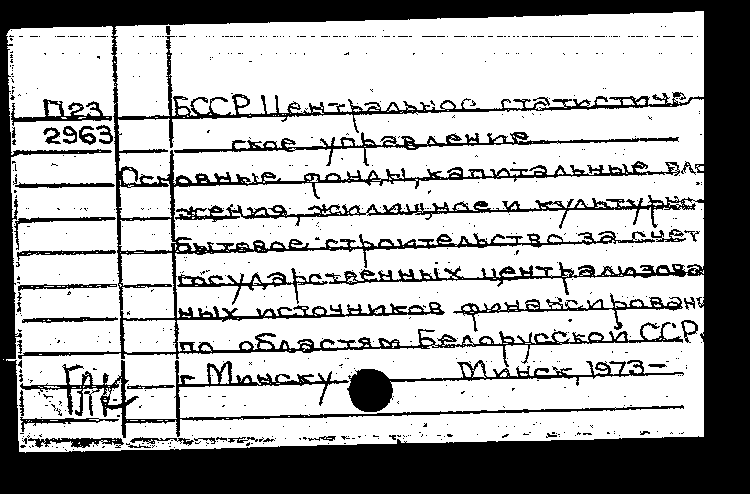 П23 БССР Центральное статистиче
2963 ское управление
Основные фонды, капитальные вло
жения, жилищное и культурно-
бытовое строительство за счет
государственных централизова
ных источников финансирован
по областям Белорусской ССР и
г Минску Минск, 1973-
ГАК